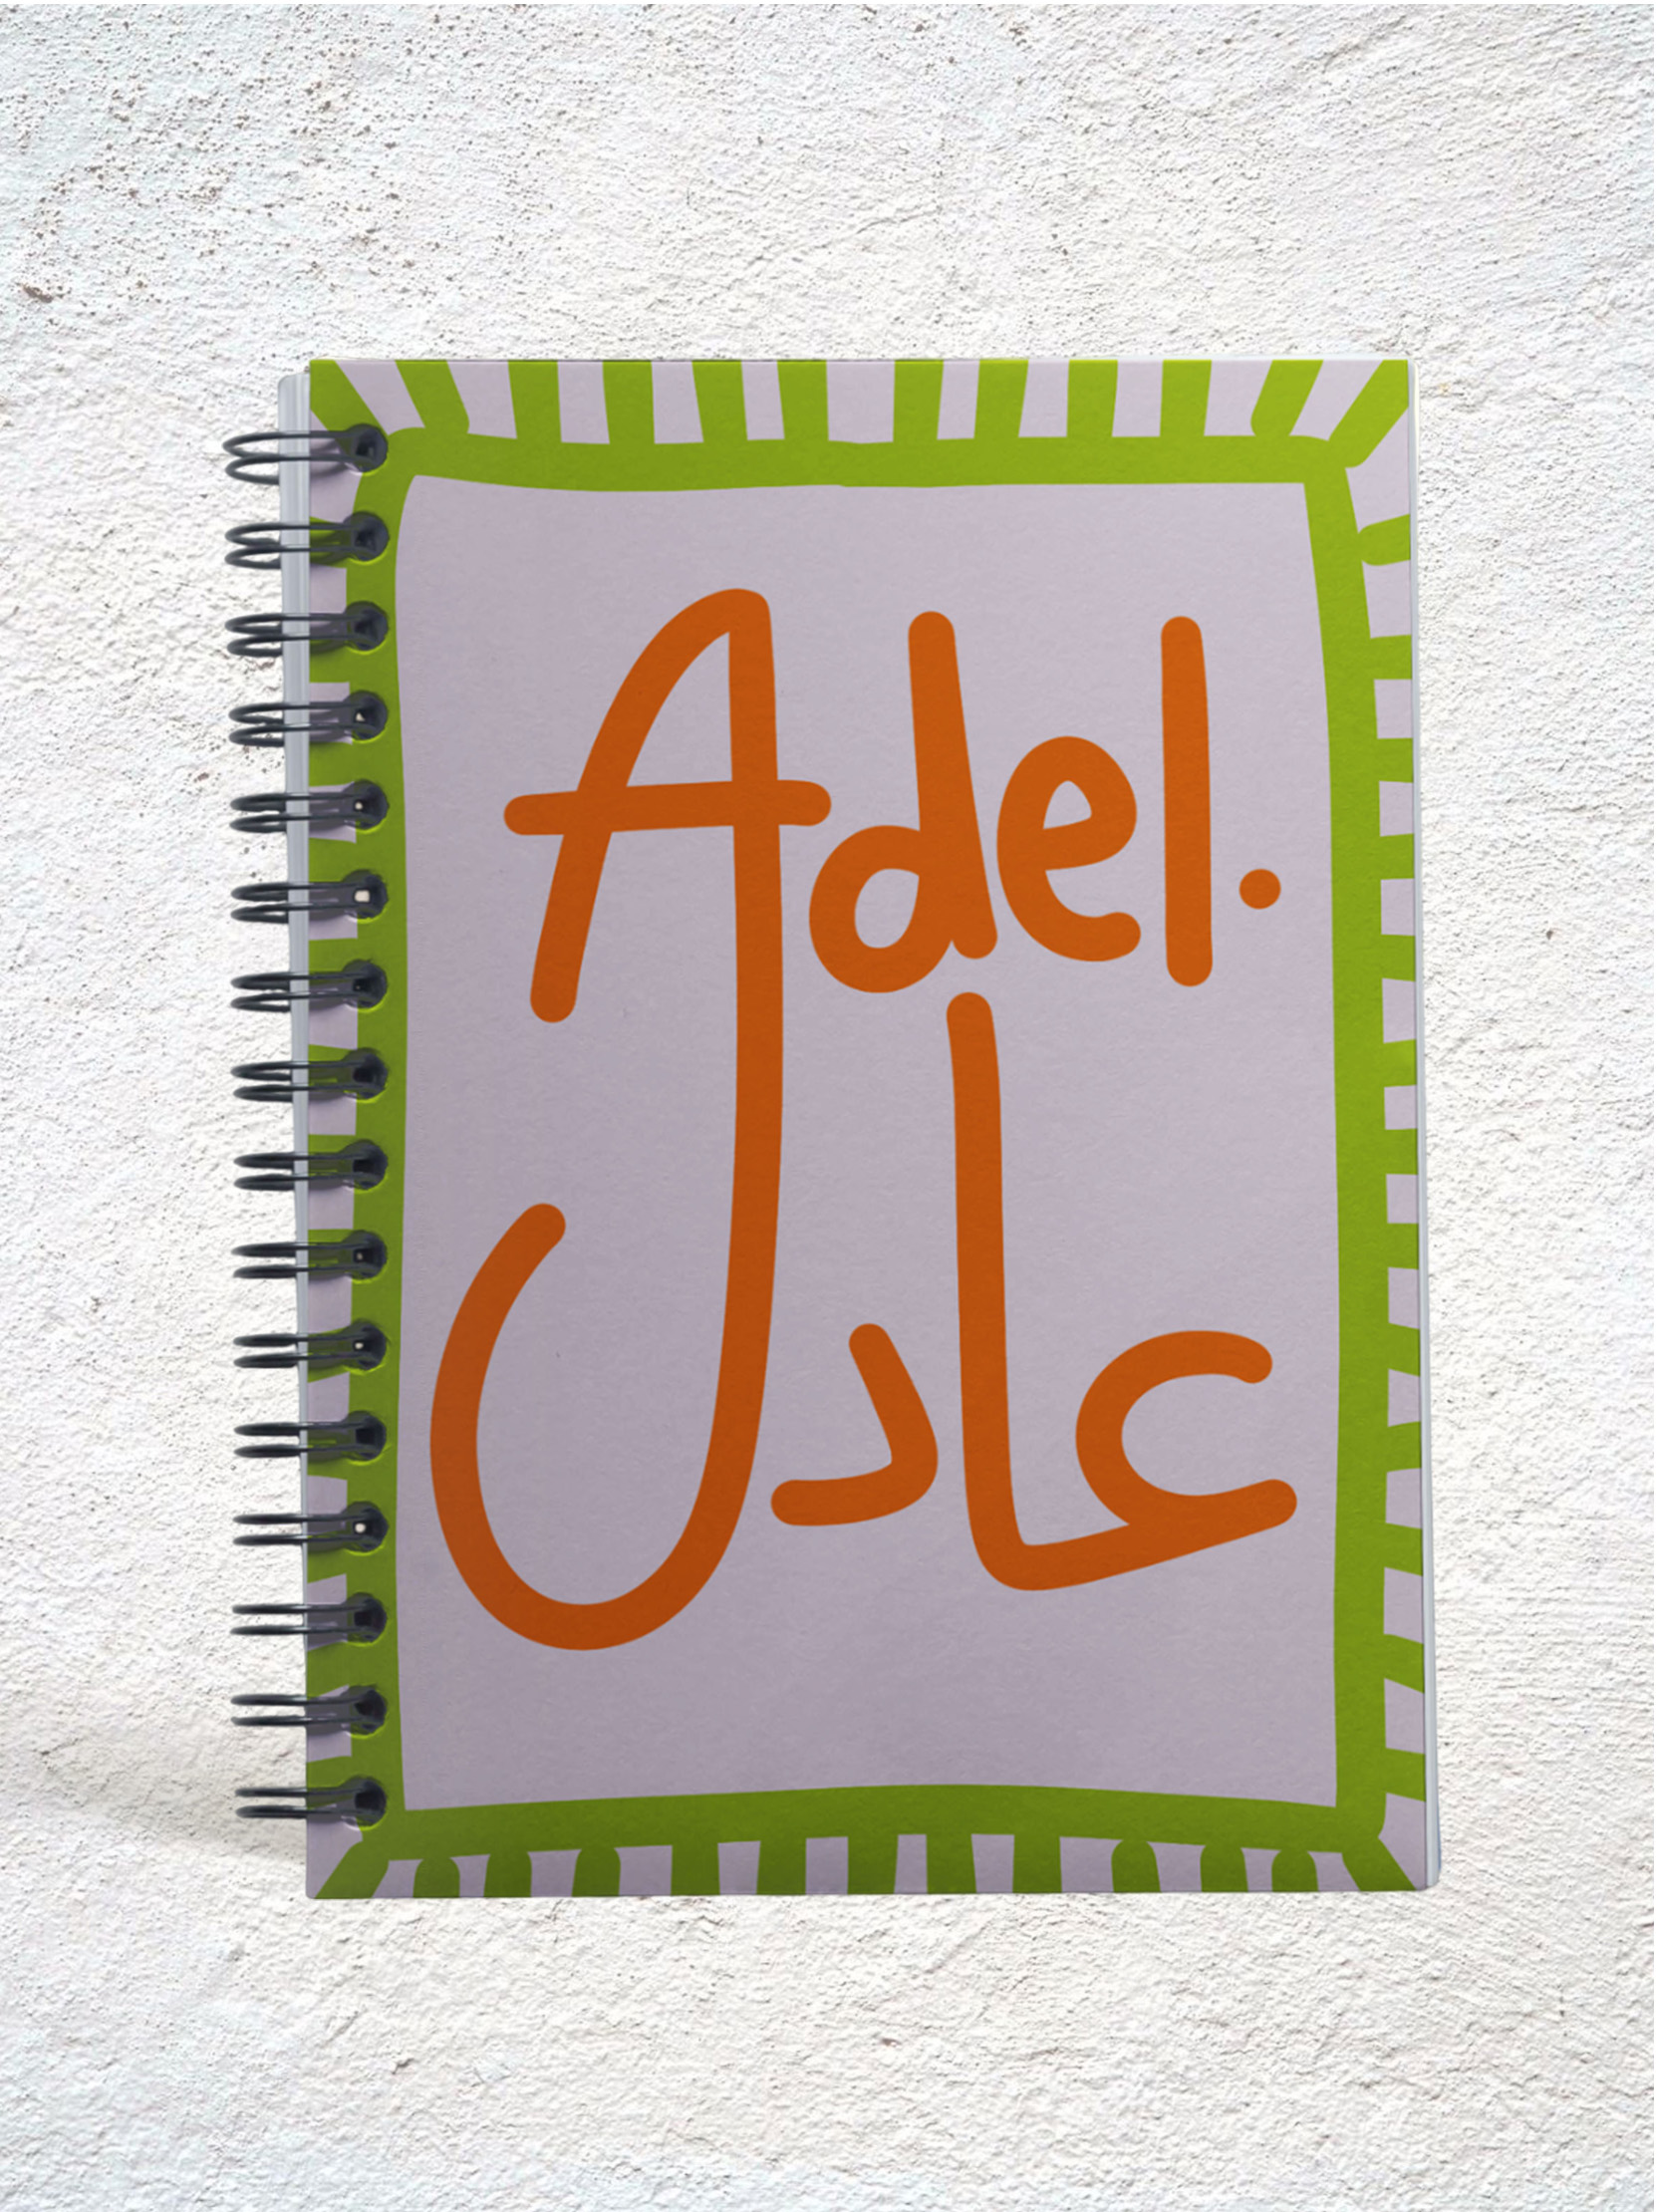 Adel.
عادل